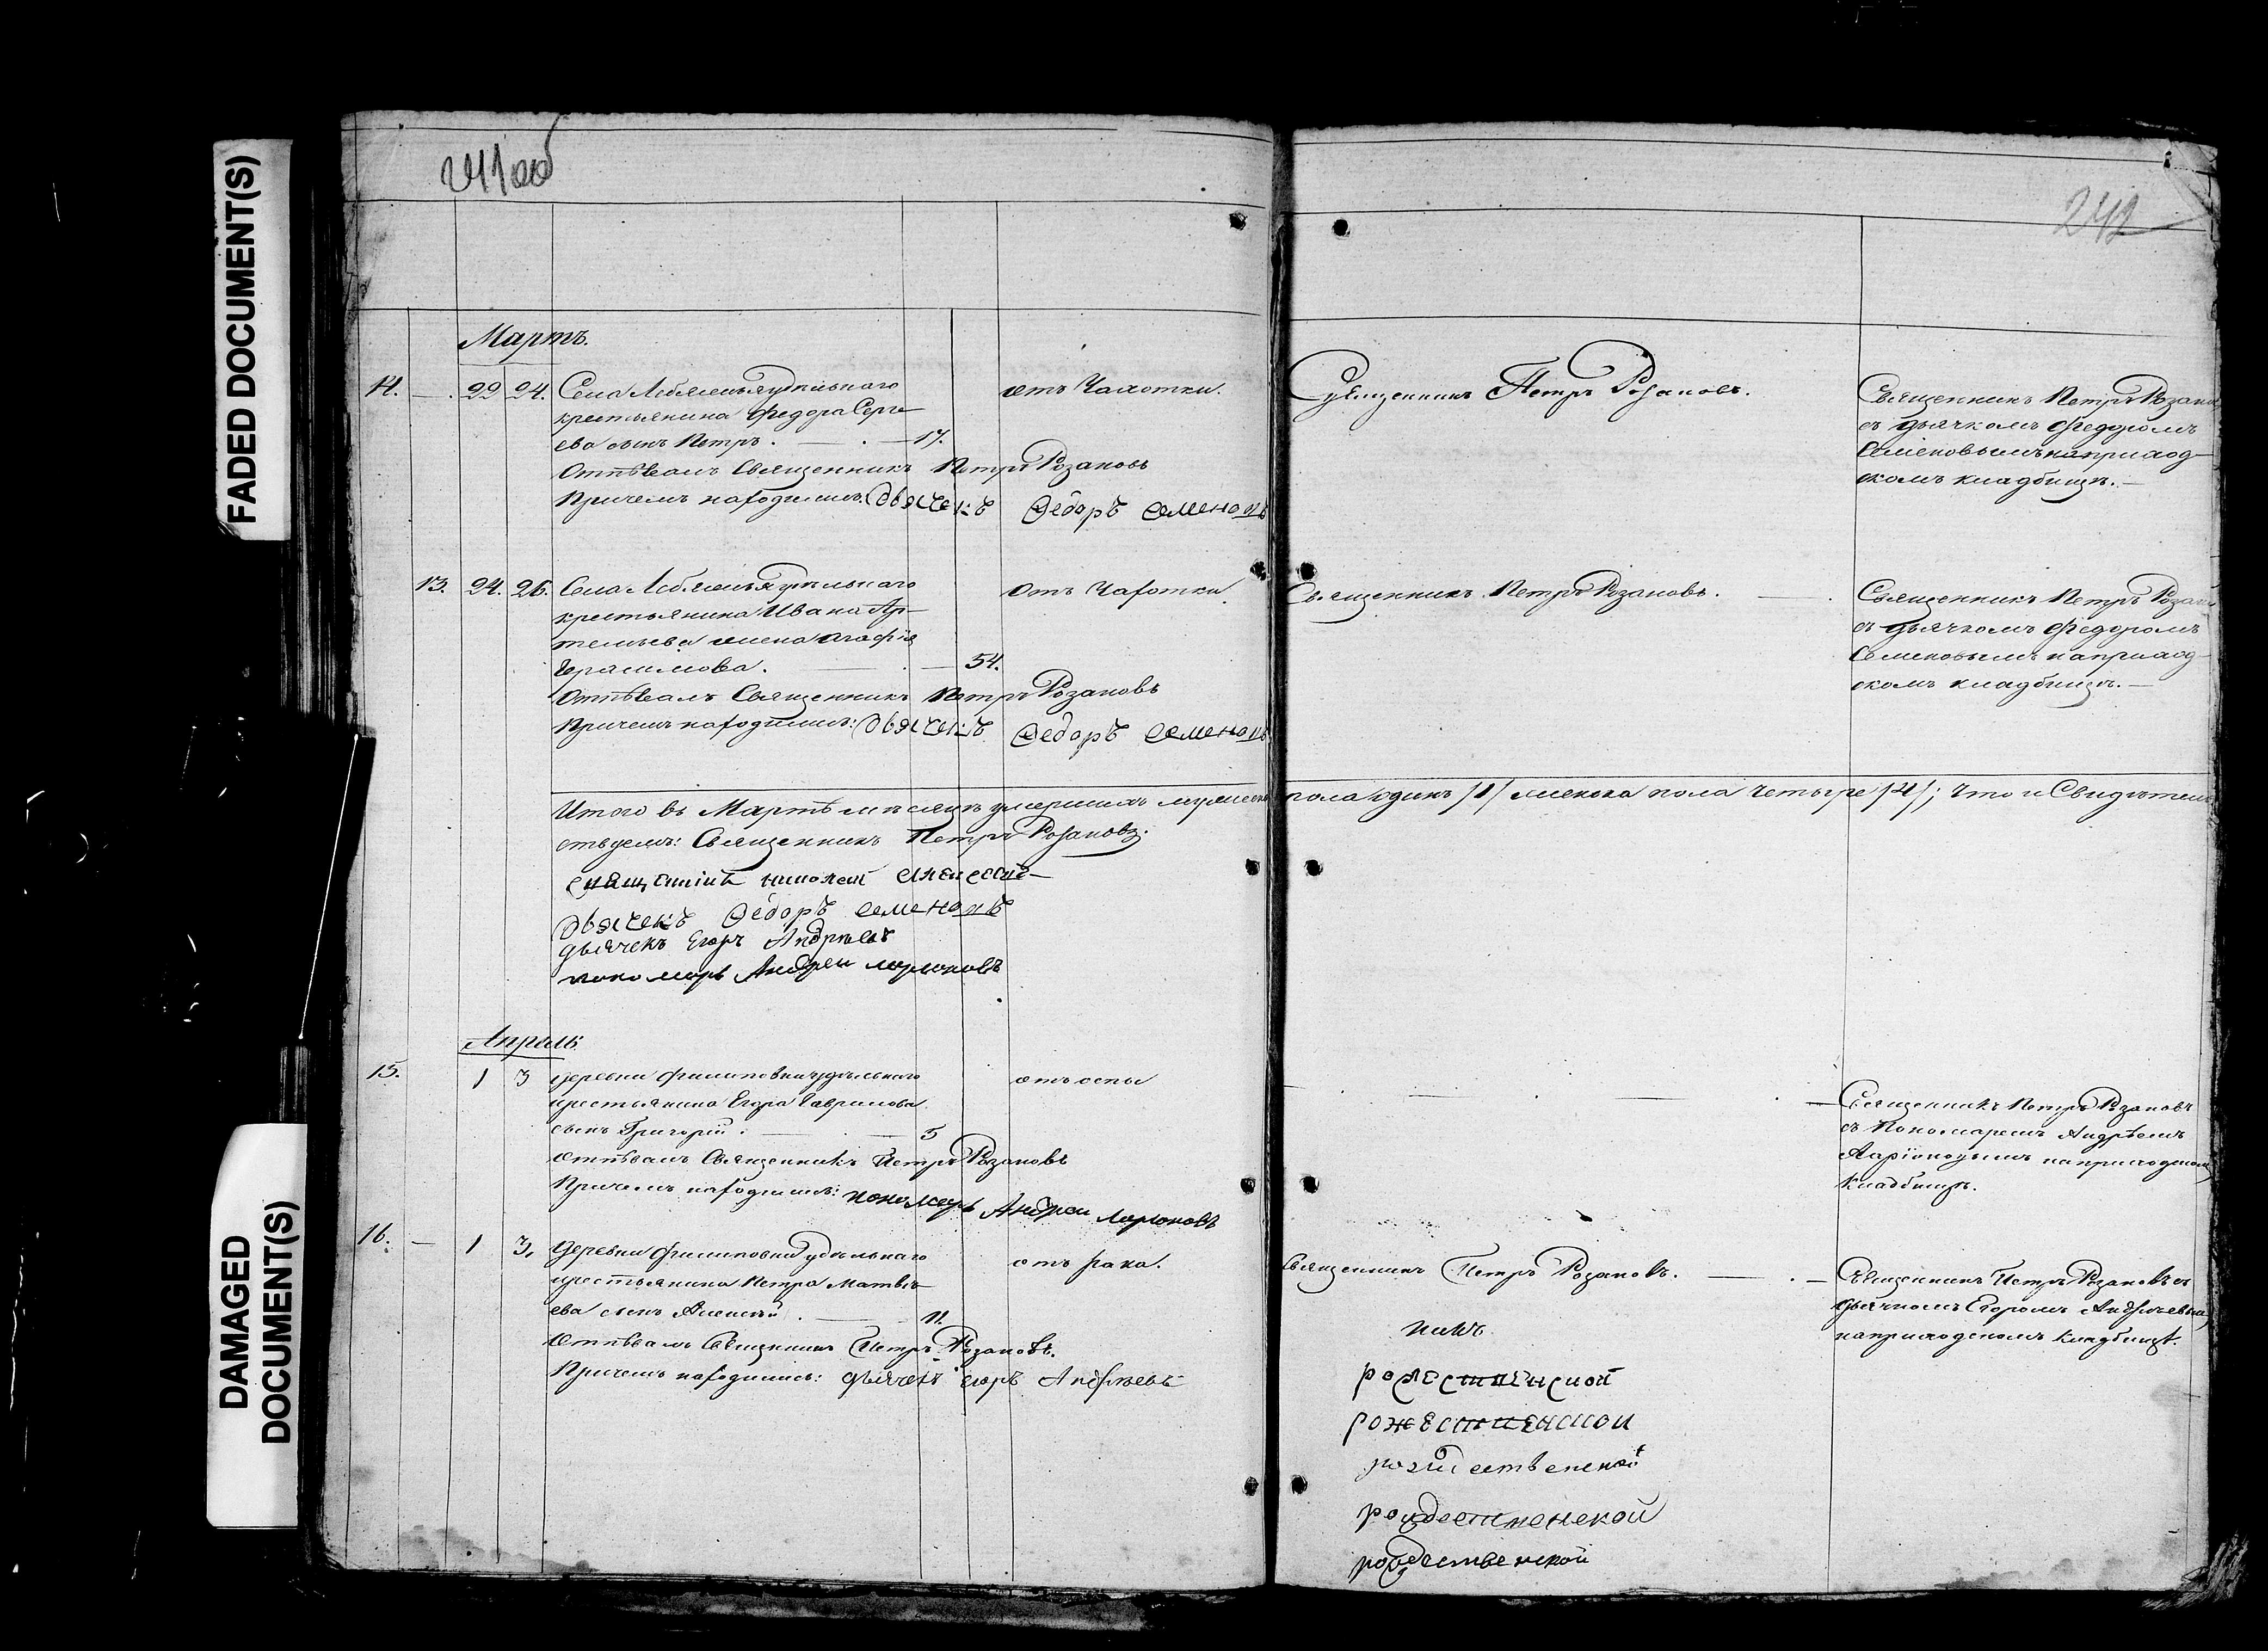 FADED DOCUMENT(S)
DAMAGED
DOCUMENT(S)
241об
242
Мартъ.
14. 22 24. Села удѣльнаго
крестьянина Федора Серге
ева сынъ Петръ. 17.
Отпѣвалъ Священникъ Петръ Розановъ
Причемъ находились: Дьячекъ Ѳедоръ Семеновъ
отъ Чахотки.
Священникъ Петръ Розановъ.
Священникъ Петръ Розановъ
съ дьячкомъ Федоромъ
Семеновымъ на приход-
скомъ кладбищѣ.
13. 24. 26. Села удѣльнаго
крестьянина Ивана Ар-
темьева жена Агафія
Герасимова. 54.
Отпѣвалъ Священникъ Петръ Розановъ
Причемъ находились: Дьячекъ Ѳедоръ Семеновъ
отъ Чахотки
Священникъ Петръ Розановъ.
Священникъ Петръ Розановъ
съ дьячкомъ Федоромъ
Семеновымъ на приход-
скомъ кладбищѣ.
Итого въ Мартѣ мѣсяцѣ умершихъ мужеска пола одинъ /1/ женска пола четыре /4/; что и Свидѣтель
ствуемъ: Священникъ Петръ Розановъ.
Дьячекъ Ѳедоръ Семеновъ
дьячекъ Егоръ Андреевъ
пономарь Андрей Ларионовъ
Апрѣль
15. 1 3 деревни Филиповки удѣльнаго
крестьянина Егора Гаврилова
сынъ Григорій. 5
Отпѣвалъ Священникъ Петръ Розановъ
Причемъ находились: пономарь Андрей Ларионовъ
отъ оспы
Священникъ Петръ Розановъ
съ Пономаремъ Андреемъ
Ларіоновымъ на приходскомъ
Кладбищѣ.
16. 1 3. Деревни Филиповки удѣльнаго
крестьянина Петра Матвѣ-
ева сынъ Алексѣй. 11.
Отпѣвалъ Священникъ Петръ Розановъ.
Причемъ находились: дьячекъ Егоръ Андреевъ
отъ рака.
Священникъ Петръ Розановъ.
Священникъ Петръ Розановъ съ
дьячкомъ Егоромъ Андреевымъ
на приходскомъ Кладбищѣ.
рожественской
рождественской
рождественской